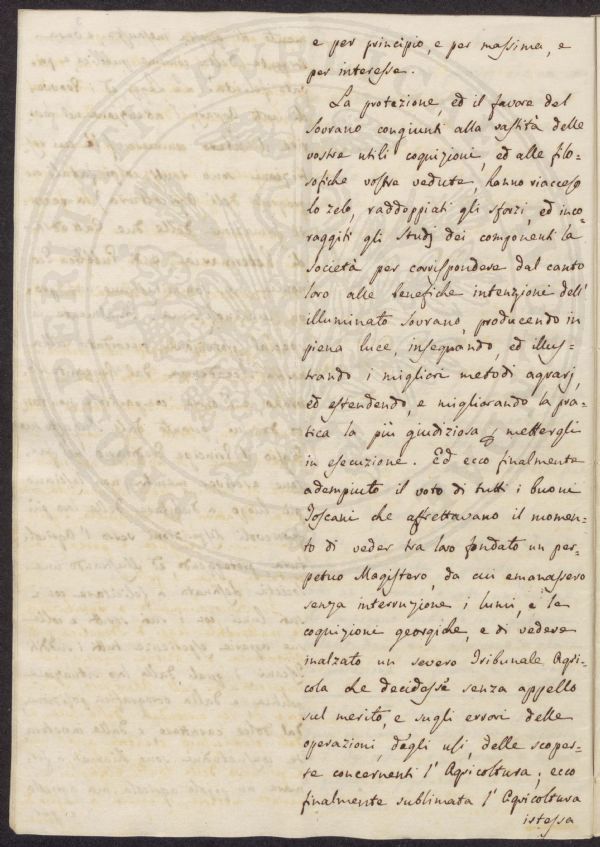 e per principio, e per massima, e
per interesse.
La protezione, ed il favore del
Sovrano congiunti alla vastità delle
vostre utili cognizioni, ed alle filo-
sofiche vostre vedute, hanno riacceso
lo zelo, raddoppiati gli sforzi, ed inco-
raggiti gli studj dei componenti la
Società per corrispondere dal canto
loro alle benefiche intenzioni dell'
illuminato Sovrano, producendo in
piena luce, insegnando, ed illus-
trando i migliori metodi agrarj,
ed estendendo, e migliorando la pra-
tica la più giudiziosa p mettergli
in esecuzione. Ed ecco finalmente
adempiuto il voto di tutti i buoni
Toscani che affrettavano il momen-
to di veder tra loro fondato un per-
petuo Magistero, da cui emanassero
senza interruzione i lumi, e le
cognizioni georgiche, e di vedere
inalzato un severo Tribunale Agri-
cola che decidesse senza appello
sul merito, e sugli errori delle
operazioni, degli usi, delle scoper-
te concernenti l'Agricoltura; ecco
finalmente sublimata l'Agricoltura
istessa